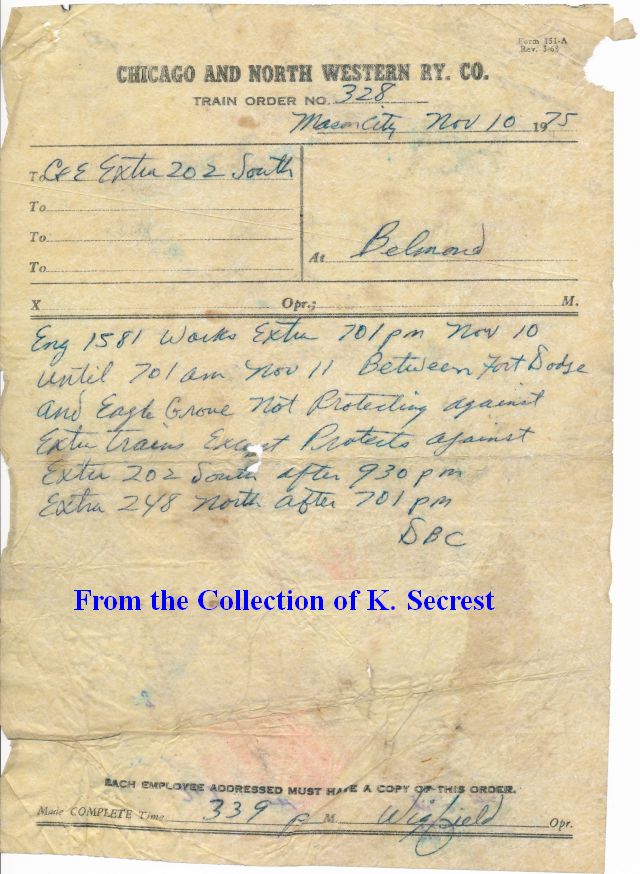 Form 151-A
Rev. 3-68
CHICAGO AND NORTH WESTERN RY. CO.
TRAIN ORDER NO. 328
Mason City Nov 10 1975
To C&E Extra 202 South
To
To
To
At Belmond
X Opr.; M.
Eng 1581 Works Extra 701 pm Nov 10
until 701 am Nov 11 Between Fort Dodge
and Eagle Grove Not Protecting against
Extra trains Except Protects against
Extra 202 South after 930 pm
Extra 248 North after 701 pm
DBC
From the Collection of K. Secrest
EACH EMPLOYEE ADDRESSED MUST HAVE A COPY OF THIS ORDER.
Made COMPLETE Time 339 P M. Wigfield Opr.